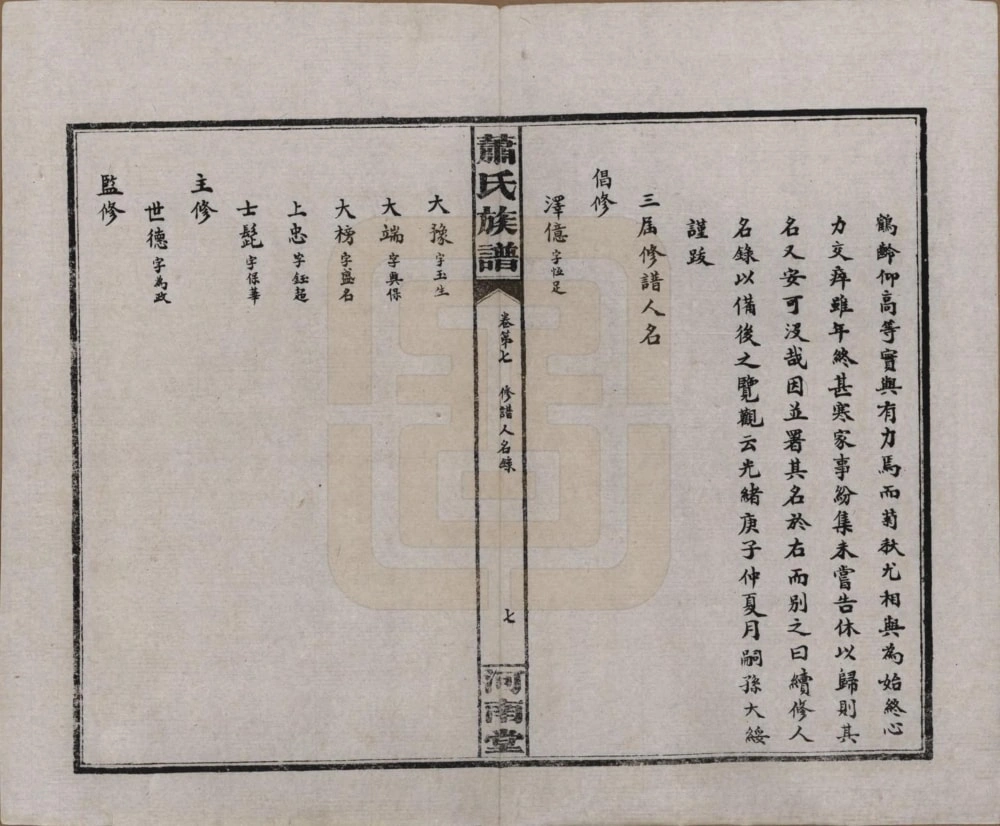 鶴齡仰高等實與有力焉而菊秋尤相與為始終心
力交瘁雖年終甚寒家事紛集未嘗告休以歸則其
名又安可沒哉因並署其名於右而別之曰續修人
名錄以備後之覽觀云光緒庚子仲夏月嗣孫大綏
謹跋
三屆修譜人名
倡修
澤億 字恒足
蕭氏族譜
卷第七 修譜人名錄
七
河南堂
大豫 字玉生
大端 字典保
大榜 字盛名
上忠 字鈺超
士髭 字保華
主修
世德 字為政
監修